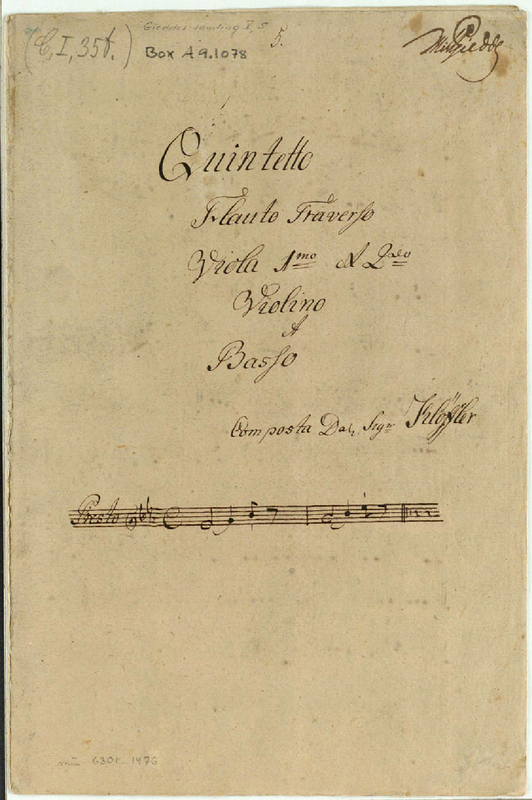 (C, I, 35b.)
Gieddes samling I, 5
Box A 9.1078
5.
WHRGiedde
Quintetto
Flauto Traverso
Viola 1mo et 2do
Violino
et
Basso
Composta Dal Sigr Klöffler
Presto
mu 6301.1476